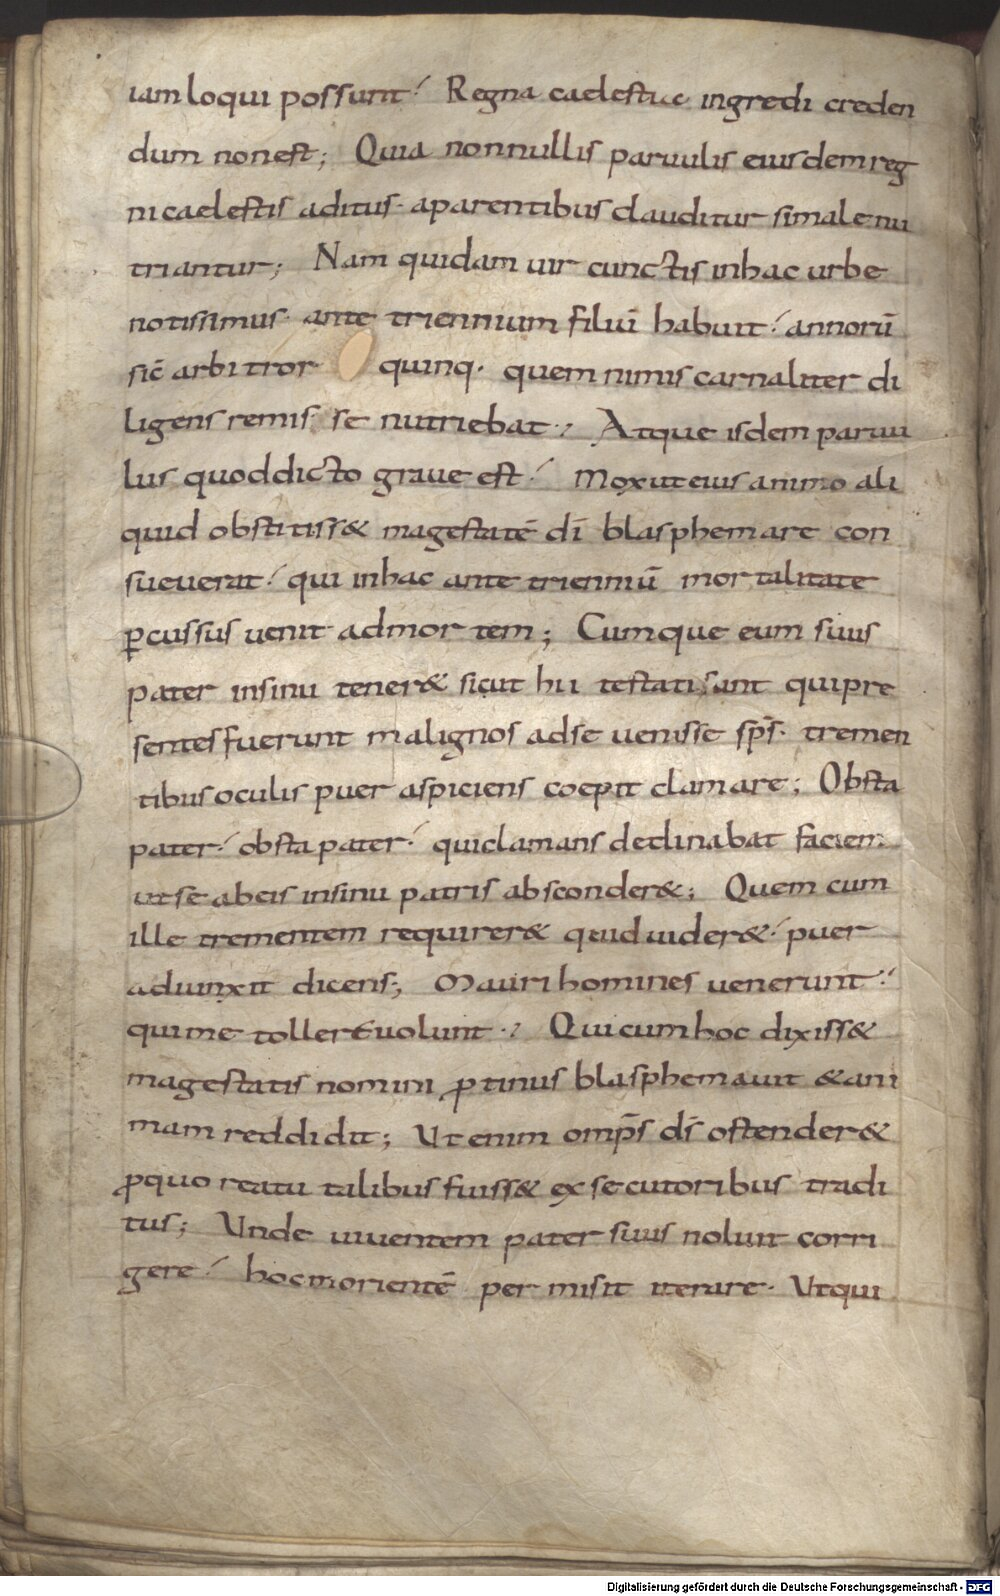 iam loqui possunt; Regna caelestia ingredi creden
dum non est; Quia nonnullis paruulis eiusdem reg
ni caelestis aditus· a parentibus clauditur si male nu
triantur; Nam quidam uir cunctis in hac urbe
notissimus· ante triennium filiū habuit; annorū
sic̄ arbitror quinq· quem nimis carnaliter di
ligens remisse nutriebat; Atque isdem paruu
lus quod dictu graue est; Mox ut eius animo ali
quid obstitiss& magestatē dī blasphemare con
sueuerat; qui in hac ante trienniū mortalitate
ꝑcussus uenit ad mortem; Cumque eum suus
pater in sinu tener& sicut hii testati sunt qui pre
sentes fuerunt malignos ad se uenisse sp̄s· tremen
tibus oculis puer aspiciens coepit clamare; Obsta
pater; obsta pater; qui clamans declinabat faciem
ut se ab eis in sinu patris absconder&; Quem cum
ille trementem requirer& quid uider&; puer
adiunxit dicens; Mauri homines uenerunt;
qui me tollere uolunt; Qui cum hoc dixiss&
magestatis nomini ꝓtinus blasphemauit & ani
mam reddidit; Ut enim omp̄s ds̄ ostender&
ꝓ quo reatu talibus fuiss& exsecutoribus tradi
tus; Unde uiuentem pater suus noluit corri
gere; hoc morientē permisit iterare· Ut qui
Digitalisierung gefördert durch die Deutsche Forschungsgemeinschaft - DFG